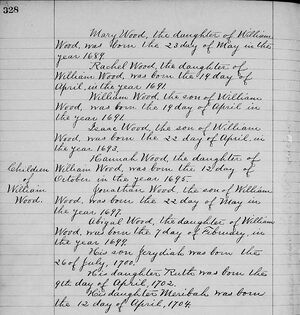 328
Mary Wood, the daughter of William
Wood, was born the 23 day of May in the
year 1689.
Rachel Wood, the daughter of
William Wood, was born the 19 day of
April, in the year 1691.
William Wood, the son of William
Wood, was born the 19 day of April in
the year 1691.
Isaac Wood, the son of William
Wood, was born the 22 day of April, in
the year 1693.
Hannah Wood, the daughter of
William Wood, was born the 12 day of
October in the year 1695.
Children
of
William
Wood.
Jonathan Wood, the son of William
Wood, was born the 22 day of May in
the year 1697.
Abigal Wood, the daughter of William
Wood, was born the 7 day of February, in
the year 1699.
His son Jerydiah was born the
26 of July, 1700.
His daughter Ruth was born the
9th day of April, 1702.
His daughter Meribah was born
the 12 day of April, 1704.